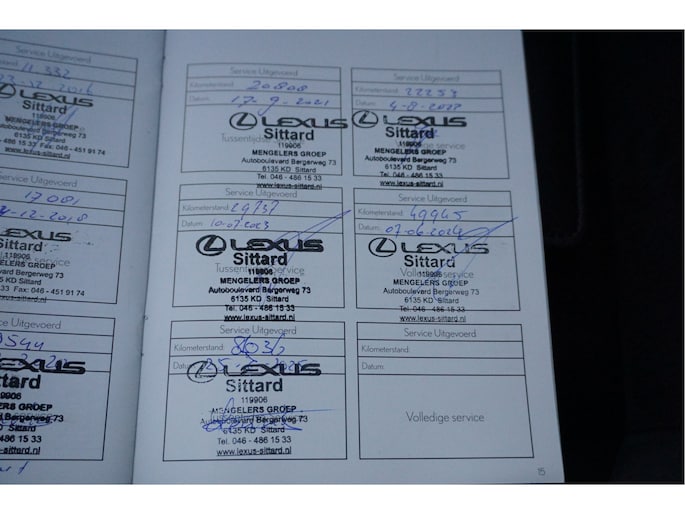 11 332
23-12-2016
LEXUS
Sittard
119906
MENGELERS GROEP
Autoboulevard Bergerweg 73
6135 KD Sittard
Fax: 046 - 451 91 74
www.lexus-sittard.nl
Service Uitgevoerd
17081
-12-2018
LEXUS
Sittard
119906
MENGELERS GROEP
Bergerweg 73
KD Sittard
Fax: 046 - 451 91 74
Service Uitgevoerd
LEXUS
Sittard
Service Uitgevoerd
Kilometerstand: 20808
Datum: 17-9-2021
LEXUS
Sittard
119906
MENGELERS GROEP
Autoboulevard Bergerweg 73
6135 KD Sittard
Tel. 046 - 486 15 33
www.lexus-sittard.nl
Service Uitgevoerd
Kilometerstand: 22253
Datum: 4-8-2022
LEXUS
Sittard
119906
MENGELERS GROEP
Autoboulevard Bergerweg 73
6135 KD Sittard
Tel. 046 - 486 15 33
www.lexus-sittard.nl
Service Uitgevoerd
Kilometerstand: 29737
Datum: 10-07-2023
LEXUS
Sittard
Tussentijdse service
119906
MENGELERS GROEP
Autoboulevard Bergerweg 73
6135 KD Sittard
Tel. 046 - 486 15 33
www.lexus-sittard.nl
Service Uitgevoerd
Kilometerstand: 49945
Datum: 07-06-2024
LEXUS
Sittard
Volledige service
119906
MENGELERS GROEP
Autoboulevard Bergerweg 73
6135 KD Sittard
Tel. 046 - 486 15 33
www.lexus-sittard.nl
Service Uitgevoerd
Kilometerstand:
Datum:
LEXUS
Sittard
119906
MENGELERS GROEP
Autoboulevard Bergerweg 73
6135 KD Sittard
Tel. 046 - 486 15 33
www.lexus-sittard.nl
Service Uitgevoerd
Kilometerstand:
Datum:
Volledige service
15